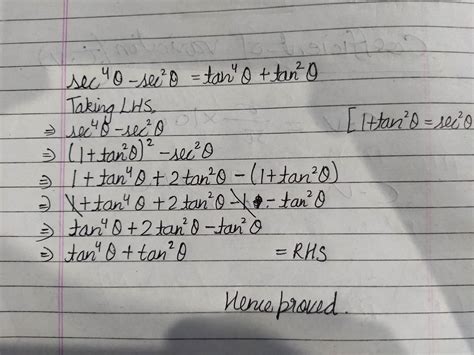 sec⁴θ - sec²θ = tan⁴θ + tan²θ
Taking LHS
⇒ sec⁴θ - sec²θ [1+tan²θ = sec²θ
⇒ (1+tan²θ)² - sec²θ
⇒ 1 + tan⁴θ + 2tan²θ - (1+tan²θ)
⇒ 1 + tan⁴θ + 2tan²θ - 1 - tan²θ
⇒ tan⁴θ + 2tan²θ - tan²θ
⇒ tan⁴θ + tan²θ = RHS
Hence proved.